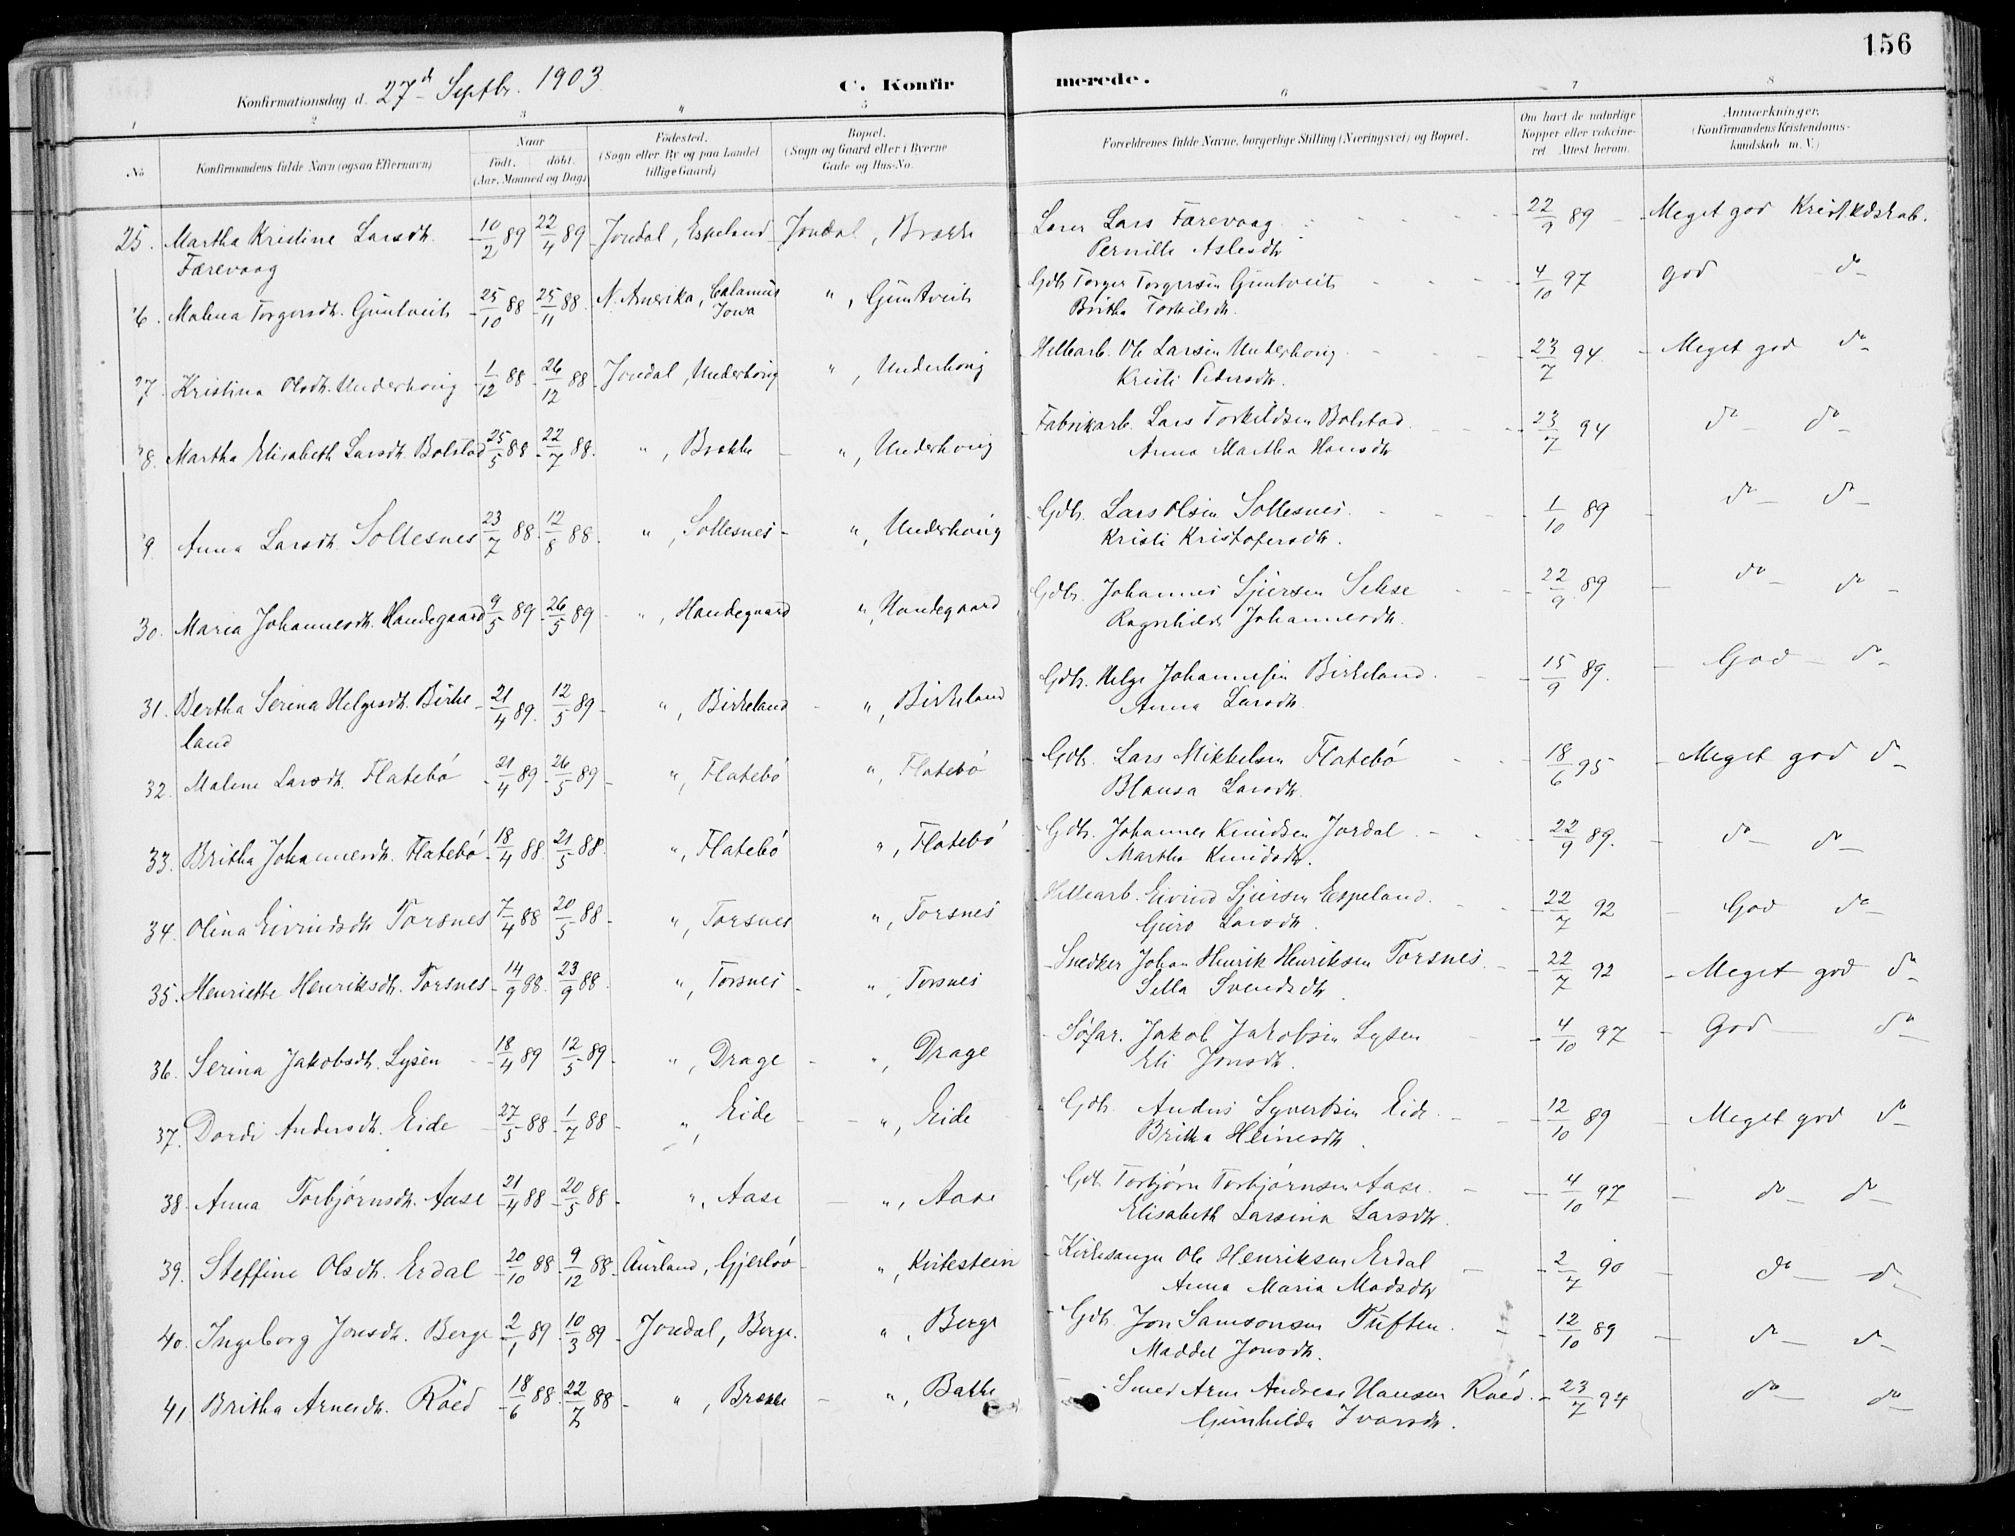 156
Konfirmationsdag d. 27d Septbr. 1903
C. Konfirmerede.
1 2 3 4 5 6 7 8
No
Konfirmandens fulde Navn (ogsaa Efternavn)
Naar født. døbt. (Aar, Maaned og Dag)
Fødested. (Sogn eller By og paa Landet tillige Gaard)
Bopæl. (Sogn og Gaard eller i Byerne Gade og Hus-No.
Forældrenes fulde Navne, borgerlige Stilling (Næringsvei) og Bopæl.
Om havt de naturlige Kopper eller vakcineret. Attest herom.
Anmærkninger. (Konfirmandens Kristendomskundskab m. V.)
25. Martha Kristine Larsdtr. Færevaag 10/2 89 22/4 89 Jondal, Espeland Jondal, Brække Lærer Lars Færevaag. Pernille Aslesdtr 22/9 89 Meget god Kristkdskab.
26. Malena Torgersdtr. Guntveit 25/10 88 25/11 88 N. Amerika, Calamus Iowa ", Guntveit Gdb. Torger Torgersen Guntveit Britha Torkildsdtr. 4/10 97 god do
27. Kristina Olsdtr. Underhoug 1/12 88 26/12 88 Jondal, Underhoug ", Underhoug Hellearb. Ole Larsen Underhoug. Kristi Pedersdtr. 23/7 94 Meget god do
28. Martha Elisabeth Larsdtr. Bolstad 25/5 88 22/7 88. ", Brække ", Underhoug Fabrikarb. Lars Torkildsen Bolstad. Anna Martha Hansdtr 23/7 94 do do
29. Anna Larsdtr. Sollesnes 23/7 88 12/8 88. ", Sollesnes ", Underhoug Gdbr. Lars Olsen Sollesnes. Kristi Kristofersdtr. 1/10 89 do do
30. Maria Johannesdtr. Handegaard 9/5 89 26/5 89 ", Handegaard ", Handegaard Gdbr. Johannes Sjursen Sekse Ragnhilde Johannesdtr. 22/9 89 do do
31. Bertha Serina Helgesdtr. Birkeland 21/4 89. 12/5 89 ", Birkeland ", Birkeland Gdbr. Helge Johannesen Birkeland. Anna Larsdtr. 15/9 89. God do
32. Malene Larsdtr. Flatebø 21/4 89 26/5 89 ", Flatebø ", Flatebø Gdbr. Lars Mikkelsen Flatebø Blansa Larsdtr. 18/6 95 Meget god do
33. Britha Johannesdtr. Flatebø 18/4 88 21/5 88. ", Flatebø ", Flatebø Gdbr. Johannes Knudsen Jordal. Martha Knudsdtr. 22/9 89. do do
34. Olina Eivindsdtr Torsnes 7/4 88 20/5 88 ", Torsnes ", Torsnes Hellearb. Eivind Sjursen Espeland. Guro Larsdtr. 22/7 92 God do
35. Henriette Henriksdtr. Torsnes 14/9 88. 23/9 88. ", Torsnes ", Torsnes Snedker Johan Henrik Henriksen Torsnes. Sella Svendsdtr. 22/7 92 Meget god do
36. Serina Jakobsdtr. Lysen 18/4 89 12/5 89 ", Drage ", Drage Søfar. Jakob Jakobsen Lysen Eli Jonsdtr. 4/10 97 God do
37. Dordi Andersdtr. Eide 27/5 88 1/7 88 ", Eide ", Eide Gdbr. Anders Syvertsen Eide. Britha Heinesdtr. 12/10 89 Meget god do
38. Anna Torbjørnsdtr. Aase 21/4 88 20/5 88 ", Aase ", Aase Gdb. Torbjørn Torbjørnsen Aase. Elisabeth Larsina Larsdtr. 4/10 97 do do
39. Steffine Olsdtr. Erdal 20/10 88 9/12 88 Aurland, Gjerløv ", Kirkestein Kirkesanger Ole Henriksen Erdal Anna Maria Madsdtr 2/7 90 do do
40. Ingeborg Jonsdtr. Berge 2/1 89 10/3 89 Jondal, Berge. ", Berge Gdb. Jon Samsonsen Tuften. Maddel Jonsdtr. 12/10 89 do do
41 Britha Arnesdtr. Røed 18/6 88 22/7 88 ", Brække ", Bakke Smed Arne Andreas Hansen Røed. Gunhilda Ivarsdtr. 23/7 94 do do